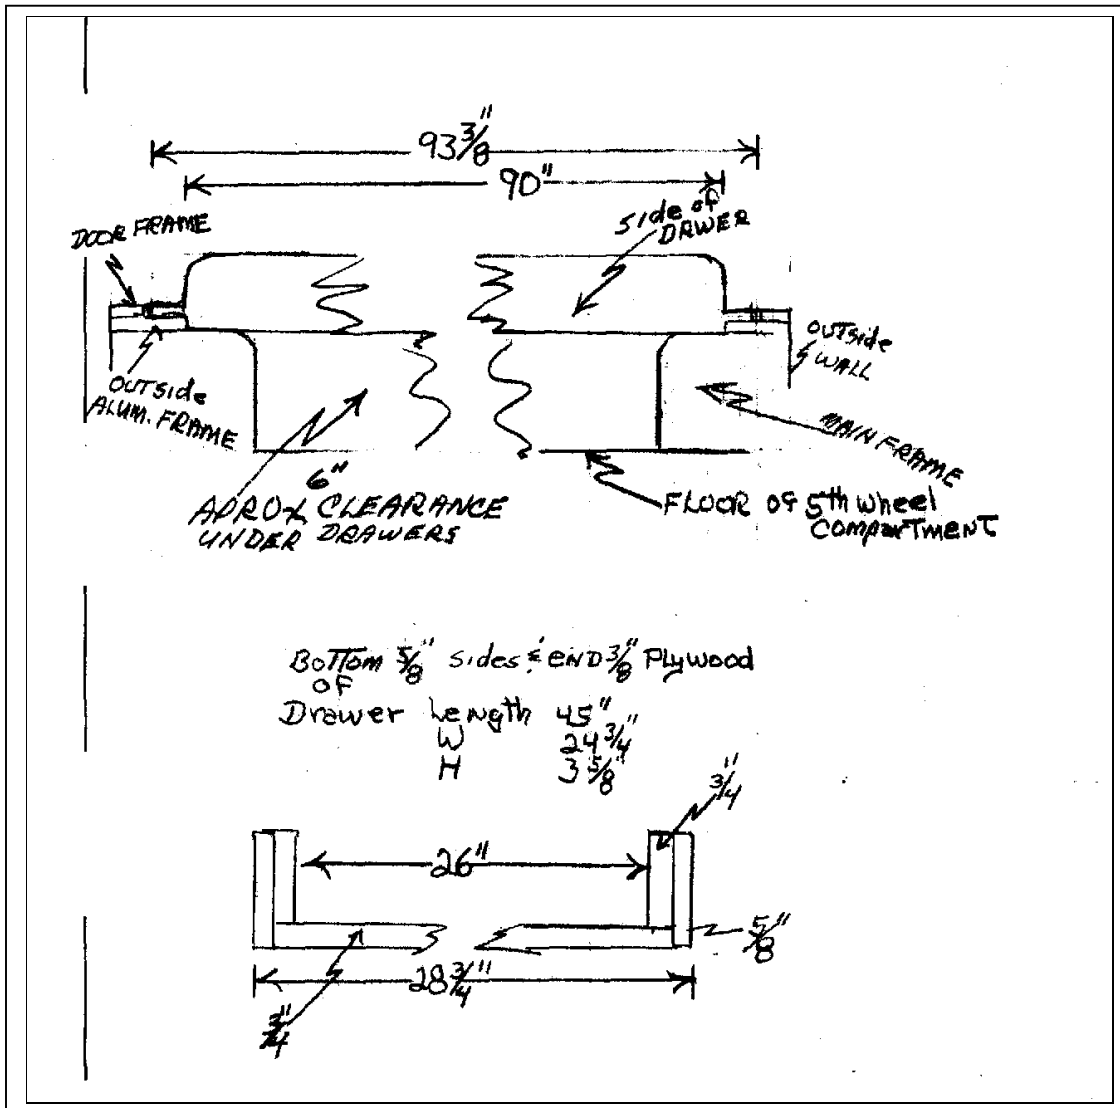 93 3/8"
90"
DOOR FRAME
Side of
DRWER
OUTSide
ALUM. FRAME
OUTSide
WALL
MAIN FRAME
6"
APROX CLEARANCE
UNDER DRAWERS
FLOOR OF 5th Wheel
COMPARTMENT
BOTTOM 5/8" Sides & END 3/8" Plywood
OF
Drawer Length 45"
W 24 3/4"
H 3 5/8"
3/4"
26"
5/8"
28 3/4"
3/4"